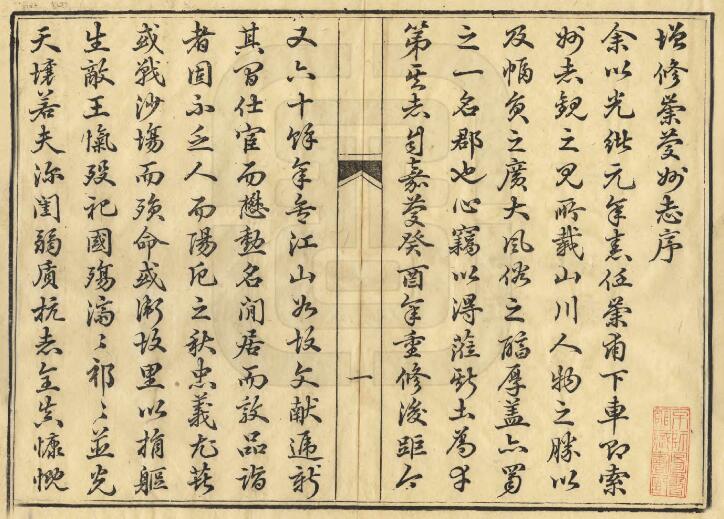 增修崇慶州志序
余以光緒元年任崇甫下車即索
州志觀之見所載山川人物之勝以
及幅員之廣大風俗之醇厚蓋亦蜀
之一名郡也心竊以得蒞斯土為幸
第其志自嘉慶癸酉年重修後距今
又六十餘年矣江山如故文獻遞新
其間仕宦而懋勳名閒居而敦品詣
者固不乏人而陽厄之秋忠義尤
或戰沙場而殞命或衛故里以捐軀
生敵王愾歿祀國殤濟〻祁〻並光
天壤若夫深閨弱质抗志全貞慷慨
一